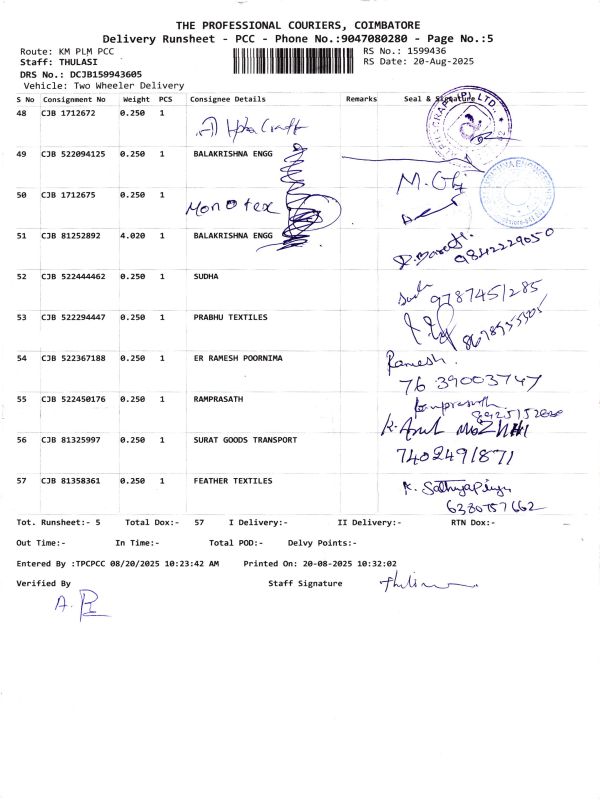 THE PROFESSIONAL COURIERS, COIMBATORE
Delivery Runsheet - PCC - Phone No.:9047080280 - Page No.:5
Route: KM PLM PCC RS No.: 1599436
Staff: THULASI RS Date: 20-Aug-2025
DRS No.: DCJB159943605
Vehicle: Two Wheeler Delivery
S No Consignment No Weight PCS Consignee Details Remarks Seal & Signature
48 CJB 1712672 0.250 1
49 CJB 522094125 0.250 1 BALAKRISHNA ENGG
50 CJB 1712675 0.250 1 Monotex
51 CJB 81252892 4.020 1 BALAKRISHNA ENGG 9842229050
52 CJB 522444462 0.250 1 SUDHA 9787451285
53 CJB 522294447 0.250 1 PRABHU TEXTILES
54 CJB 522367188 0.250 1 ER RAMESH POORNIMA Ramesh.
76 39003747
55 CJB 522450176 0.250 1 RAMPRASATH Ramprasath
56 CJB 81325997 0.250 1 SURAT GOODS TRANSPORT
7402491871
57 CJB 81358361 0.250 1 FEATHER TEXTILES K. Sathyapriya
6380757662
Tot. Runsheet:- 5 Total Dox:- 57 I Delivery:- II Delivery:- RTN Dox:-
Out Time:- In Time:- Total POD:- Delvy Points:-
Entered By :TPCPCC 08/20/2025 10:23:42 AM Printed On: 20-08-2025 10:32:02
Verified By Staff Signature